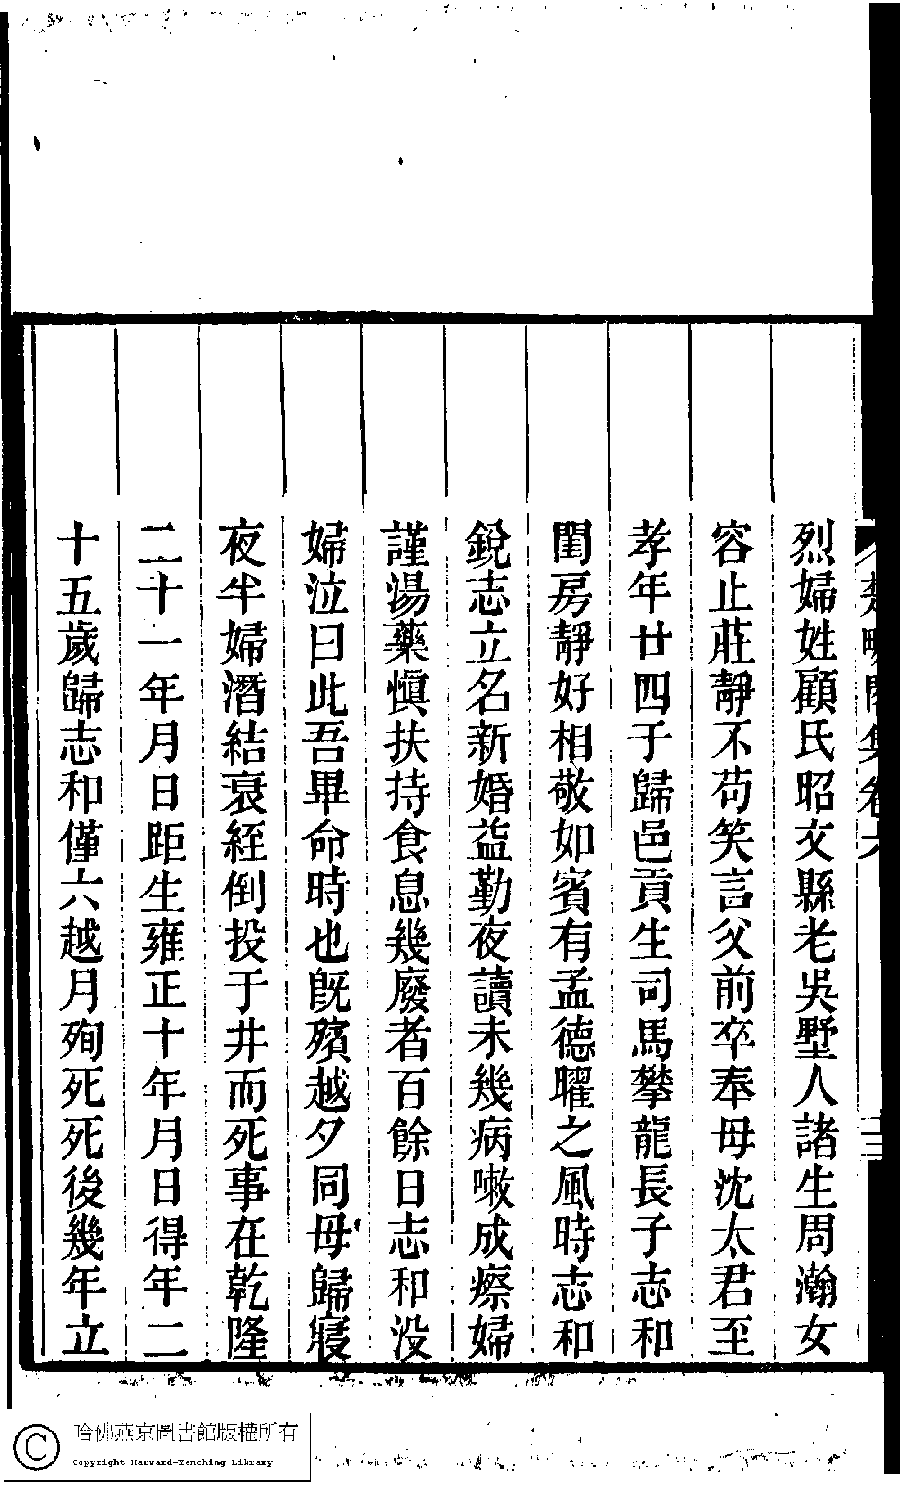 烈婦姓顧氏昭文縣老吳墅人諸生周瀚女
容止莊靜不苟笑言父前卒奉母沈太君至
孝年廿四于歸邑貢生司馬攀龍長子志和
閨房靜好相敬如賓有孟德曜之風時志和
銳志立名新婚益勤夜讀未幾病嗽成瘵婦
謹湯藥愼扶持食息幾廢者百餘日志和没
婦泣曰此吾畢命時也旣殯越夕同母歸寢
夜半婦潛結衰絰倒投于井而死事在乾隆
二十一年月日距生雍正十年月日得年二
十五歲歸志和僅六越月殉死死後幾年立
哈佛燕京圖書館版權所有
Copyright Harvard-Yenching Library